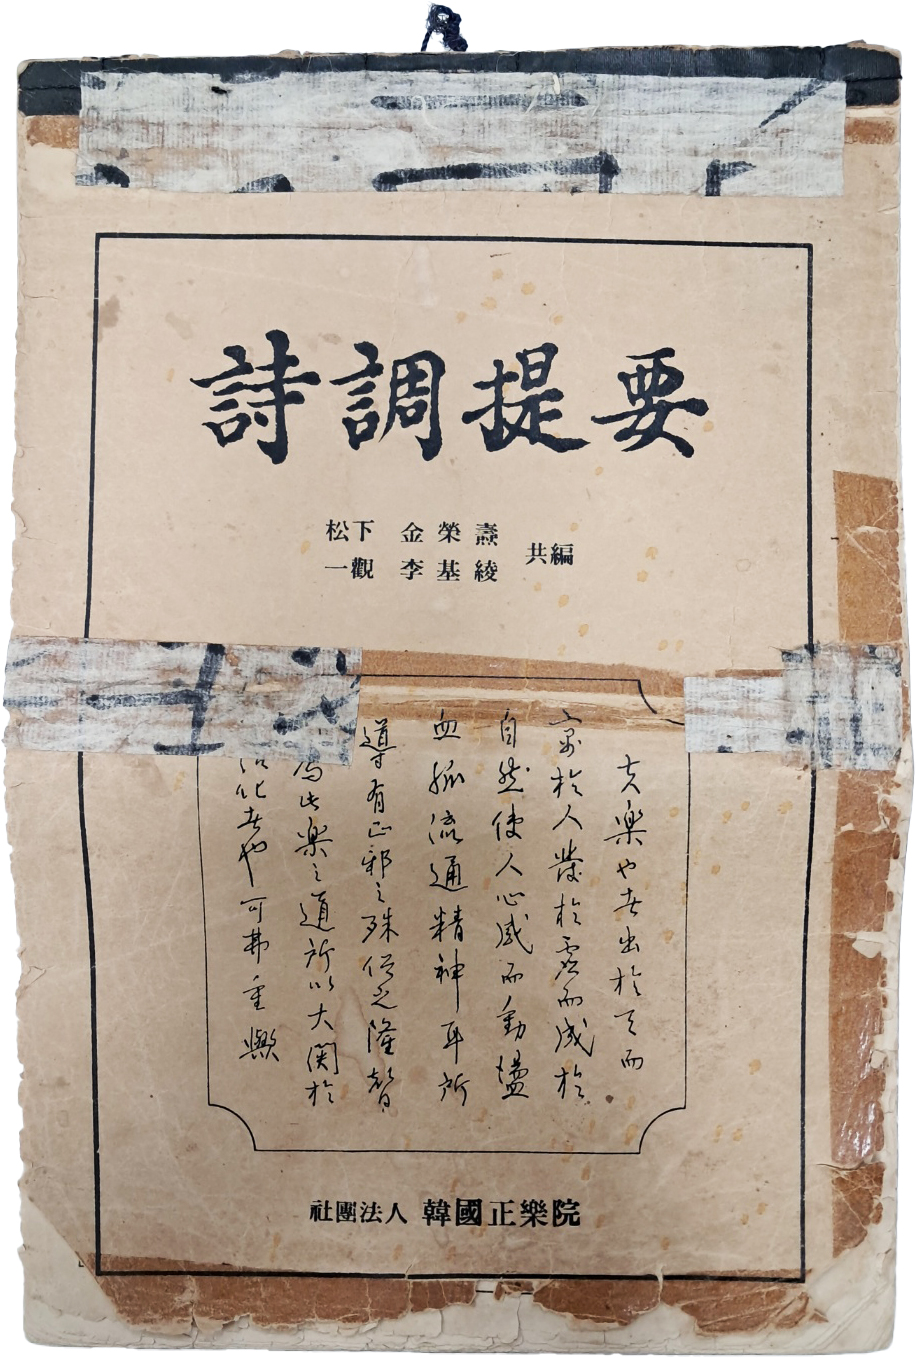 詩調提要
松下 金榮燾
一觀 李基綾
共編
夫樂也者出於天而
寓於人發於虛而成於
自然使人心感而動盪
血脈流通精神耳所
導有正邪之殊俗之隆替
此樂之道所以大関於
化者也可弗重歟
社團法人 韓國正樂院